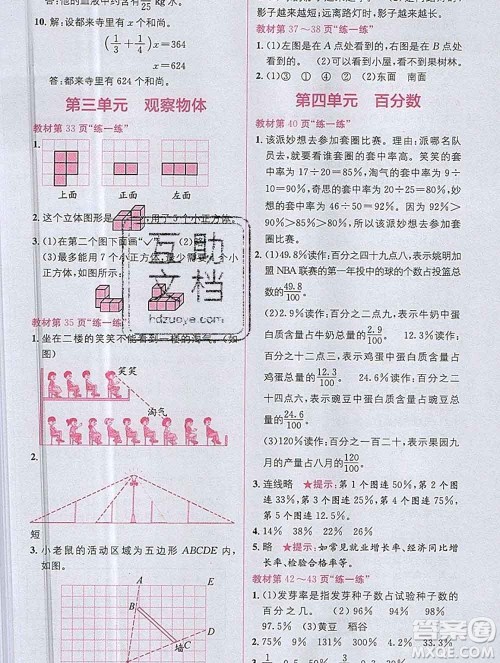 答:他的血液中约含有 /25 kg水。
10. 解:设都来寺里有x个和尚。
(1/3+1/4)x=364
x=624
答:都来寺里有624个和尚。
第三单元 观察物体
教材第33页“练一练”
1.
上面 正面 左面
2. 这个立体图形是 ,用了5个小正方体。
3. (1)在第二个图下面画“✓”
(3)最多能用7个小正方体,最少能用5个小正方体。
教材第35页“练一练”
1. 坐在二楼的笑笑不能看到一楼的淘气。(如图)
笑笑
淘气
2.
短
3. 小老鼠的活动区域为五边形ABCDE内,如图。
A
B
C
D
E
墙
影子越来越短;远离路灯时,影子越来越长。
教材第37～38页“练一练”
1. (1)左图是在A点处看到的,右图是在B点处看到的。(2)可以看到小屋,看不到果树林。
2. (1)③ ① ④ ② (2)东面 南面
第四单元 百分数
教材第40页“练一练”
1. 该派妙想去参加套圈比赛。理由:派哪名队员去要看谁套圈的套中率高。笑笑的套中率为16÷20=80%,淘气的套中率为18÷25=72%,奇思的套中率为30÷50=60%,妙想的套中率为46÷50=92%。因为92%>80%>72%>60%,所以该派妙想去参加套圈比赛。
2. (1)49.8%读作:百分之四十九点八,表示姚明加盟NBA联赛的第一年投中的球的个数占投篮总数的49.8/100
(2)2.9%读作:百分之二点九,表示牛奶中蛋白质含量占牛奶总量的2.9/100 12.6%读作:百分之十二点六,表示鸡蛋中蛋白质含量占鸡蛋总量的12.6/100 24.6%读作:百分之二十四点六,表示豌豆中蛋白质含量占豌豆总量的24.6/100
(3)120%读作:百分之一百二十,表示果园九月的产量占八月的120/100
3. 连线略 ★提示:第1个图连50%,第2个图连33%,第3个图连25%,第4个图连75%,第5个图连12.5%。
4. 14% 38% 132% 29% 22%
5. 略 ★提示:如常见的就业增长率、经济同比增长率、检验合格率等。
教材第42～43页“练一练”
1. (1)发芽率是指发芽种子数占试验种子数的百分之几。 (2)92% 94% 98% 97.5% (3)黄豆 稻谷
互助文档
hdzuoye.com
答案圈
MXQE.COM